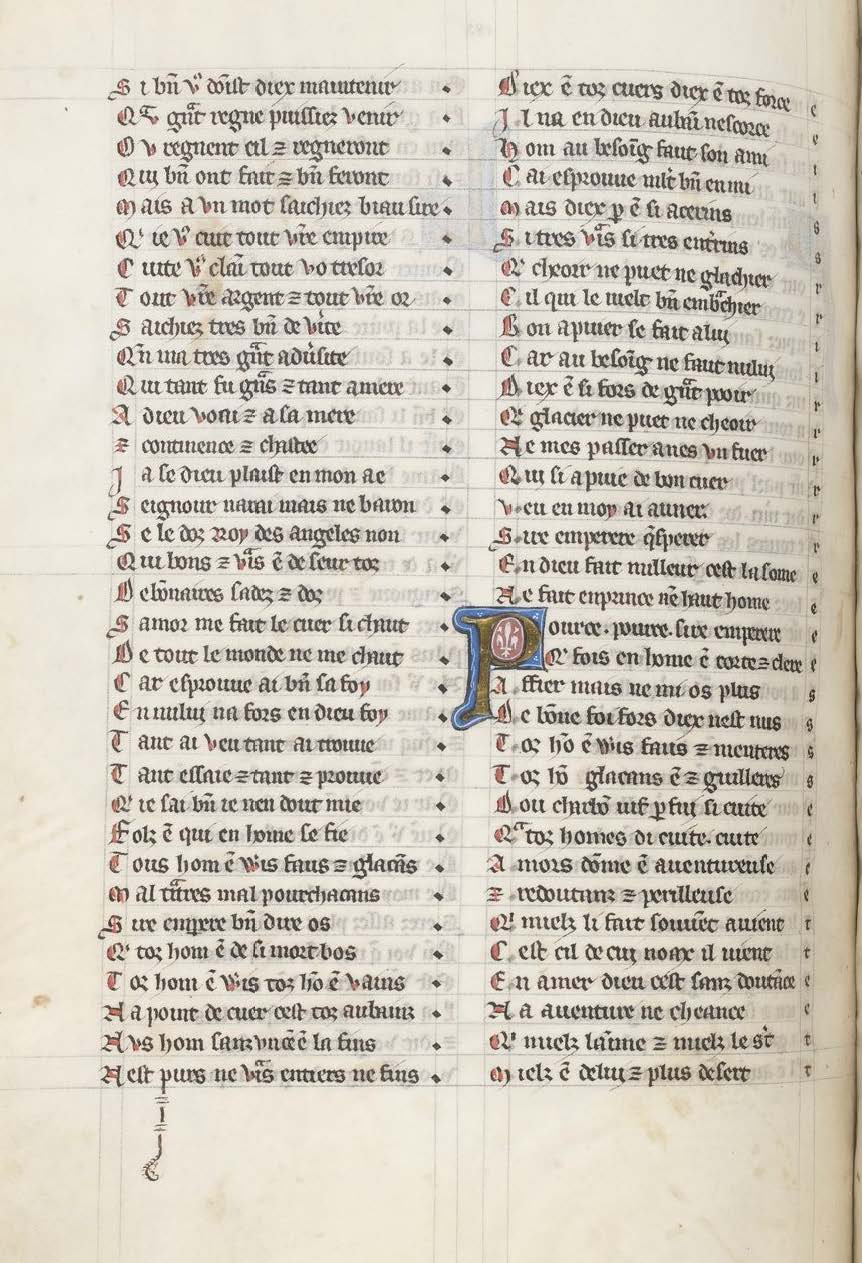 S i bñ vͦ doïst diex maintenir
Q̃ v gᵃ̃t regne puissiez venir
O v regnent cil ⁊ regneront
Q ui bñ ont fait ⁊ bñ feront
M ais a vn mot saichiez biau sire
Qͥ ie vͦ cuit tout vr̃e empire
C uite vͦ claĩ tout vo tresor
T out vr̃e argent ⁊ tout vr̃e or
S aichiez tres bñ de vͥte
Qñ ma tres gᵃ̃t adũsite
Q ui tant fu gᵃ̃s ⁊ tant amere
A dieu voai ⁊ a sa mere
⁊ continence ⁊ chastee
J a se dieu plaist en mon ae
S eignour narai mais ne baron
S e le doz roy des angeles non
Q ui bons ⁊ vᵃis ẽ de seur toz
D ebõnaires sadez ⁊ doz
S amor me fait le cuer si chaut
D e tout le monde ne me chaut
C ar esprouue ai bñ sa foy
E n nului na fors en dieu foy
T ant ai veu tant ai trouue
T ant essaie ⁊ tant ⁊ prouue
Qͥ ie sai bñ ie nen dout mie
F olz ẽ qui en home se fie
T ous hom ẽ wis faus ⁊ glacãs
M al traitres mal pourchacans
S ire empere bñ dire os
Qͥ toz hom ẽ de si mort bos
T oz hom ẽ wis toz hõ ẽ vains
N a point de cuer cest toz aubains
N vs hom sanz vnde ẽ la fins
N est purs ne vᵃis entiers ne fins
D iex ẽ toz cuers diex ẽ toz force
J l na en dieu aubũ nescorce
H om au besoĩg faut son ami
C ai esprouue ml̃t bñ en mi
M ais diex p ẽ si acerins
S i tres vᵃis si tres entͥrins
Qͥ cheoir ne puet ne glachier
C il qui le uielt bñ embᵃchier
B on apuier se fait a lui
C ar au besoĩg ne faut nului
D iex ẽ si fors de gᵃ̃t pooir
Qͥ glacier ne puet ne cheoir
N e mes passer anes vn fuer
Q ui si apuie de bon cuer
V eu en moy ai auner
S ire emperere q̃sperer
E n dieu fait milleur cest la some
N e fait enprince nẽ haut home
P ource. pource. sire emperere
Qͥ fois en home ẽ corte ⁊ clere
A ffier mais ne mi os plus
D e bõne foi fors diex nest nus
T oz hõ ẽ wis faus ⁊ menteres
T oz hõ glacans ẽ ⁊ guilleres
D ou charbõ uif p fui si cuite
Qᵃ toz homes di cuite. cuite
A mors dõme ẽ auentureuse
⁊ redoutanz ⁊ perilleuse
Qͥ mielz li fait souuẽt auient
C est cil de cui noax il uient
E n amer dieu cest sanz doutãce
N a auenture ne cheance
Qͥ mielz laĩme ⁊ mielz le sͬt
M ielz ẽ de lui ⁊ plus desert